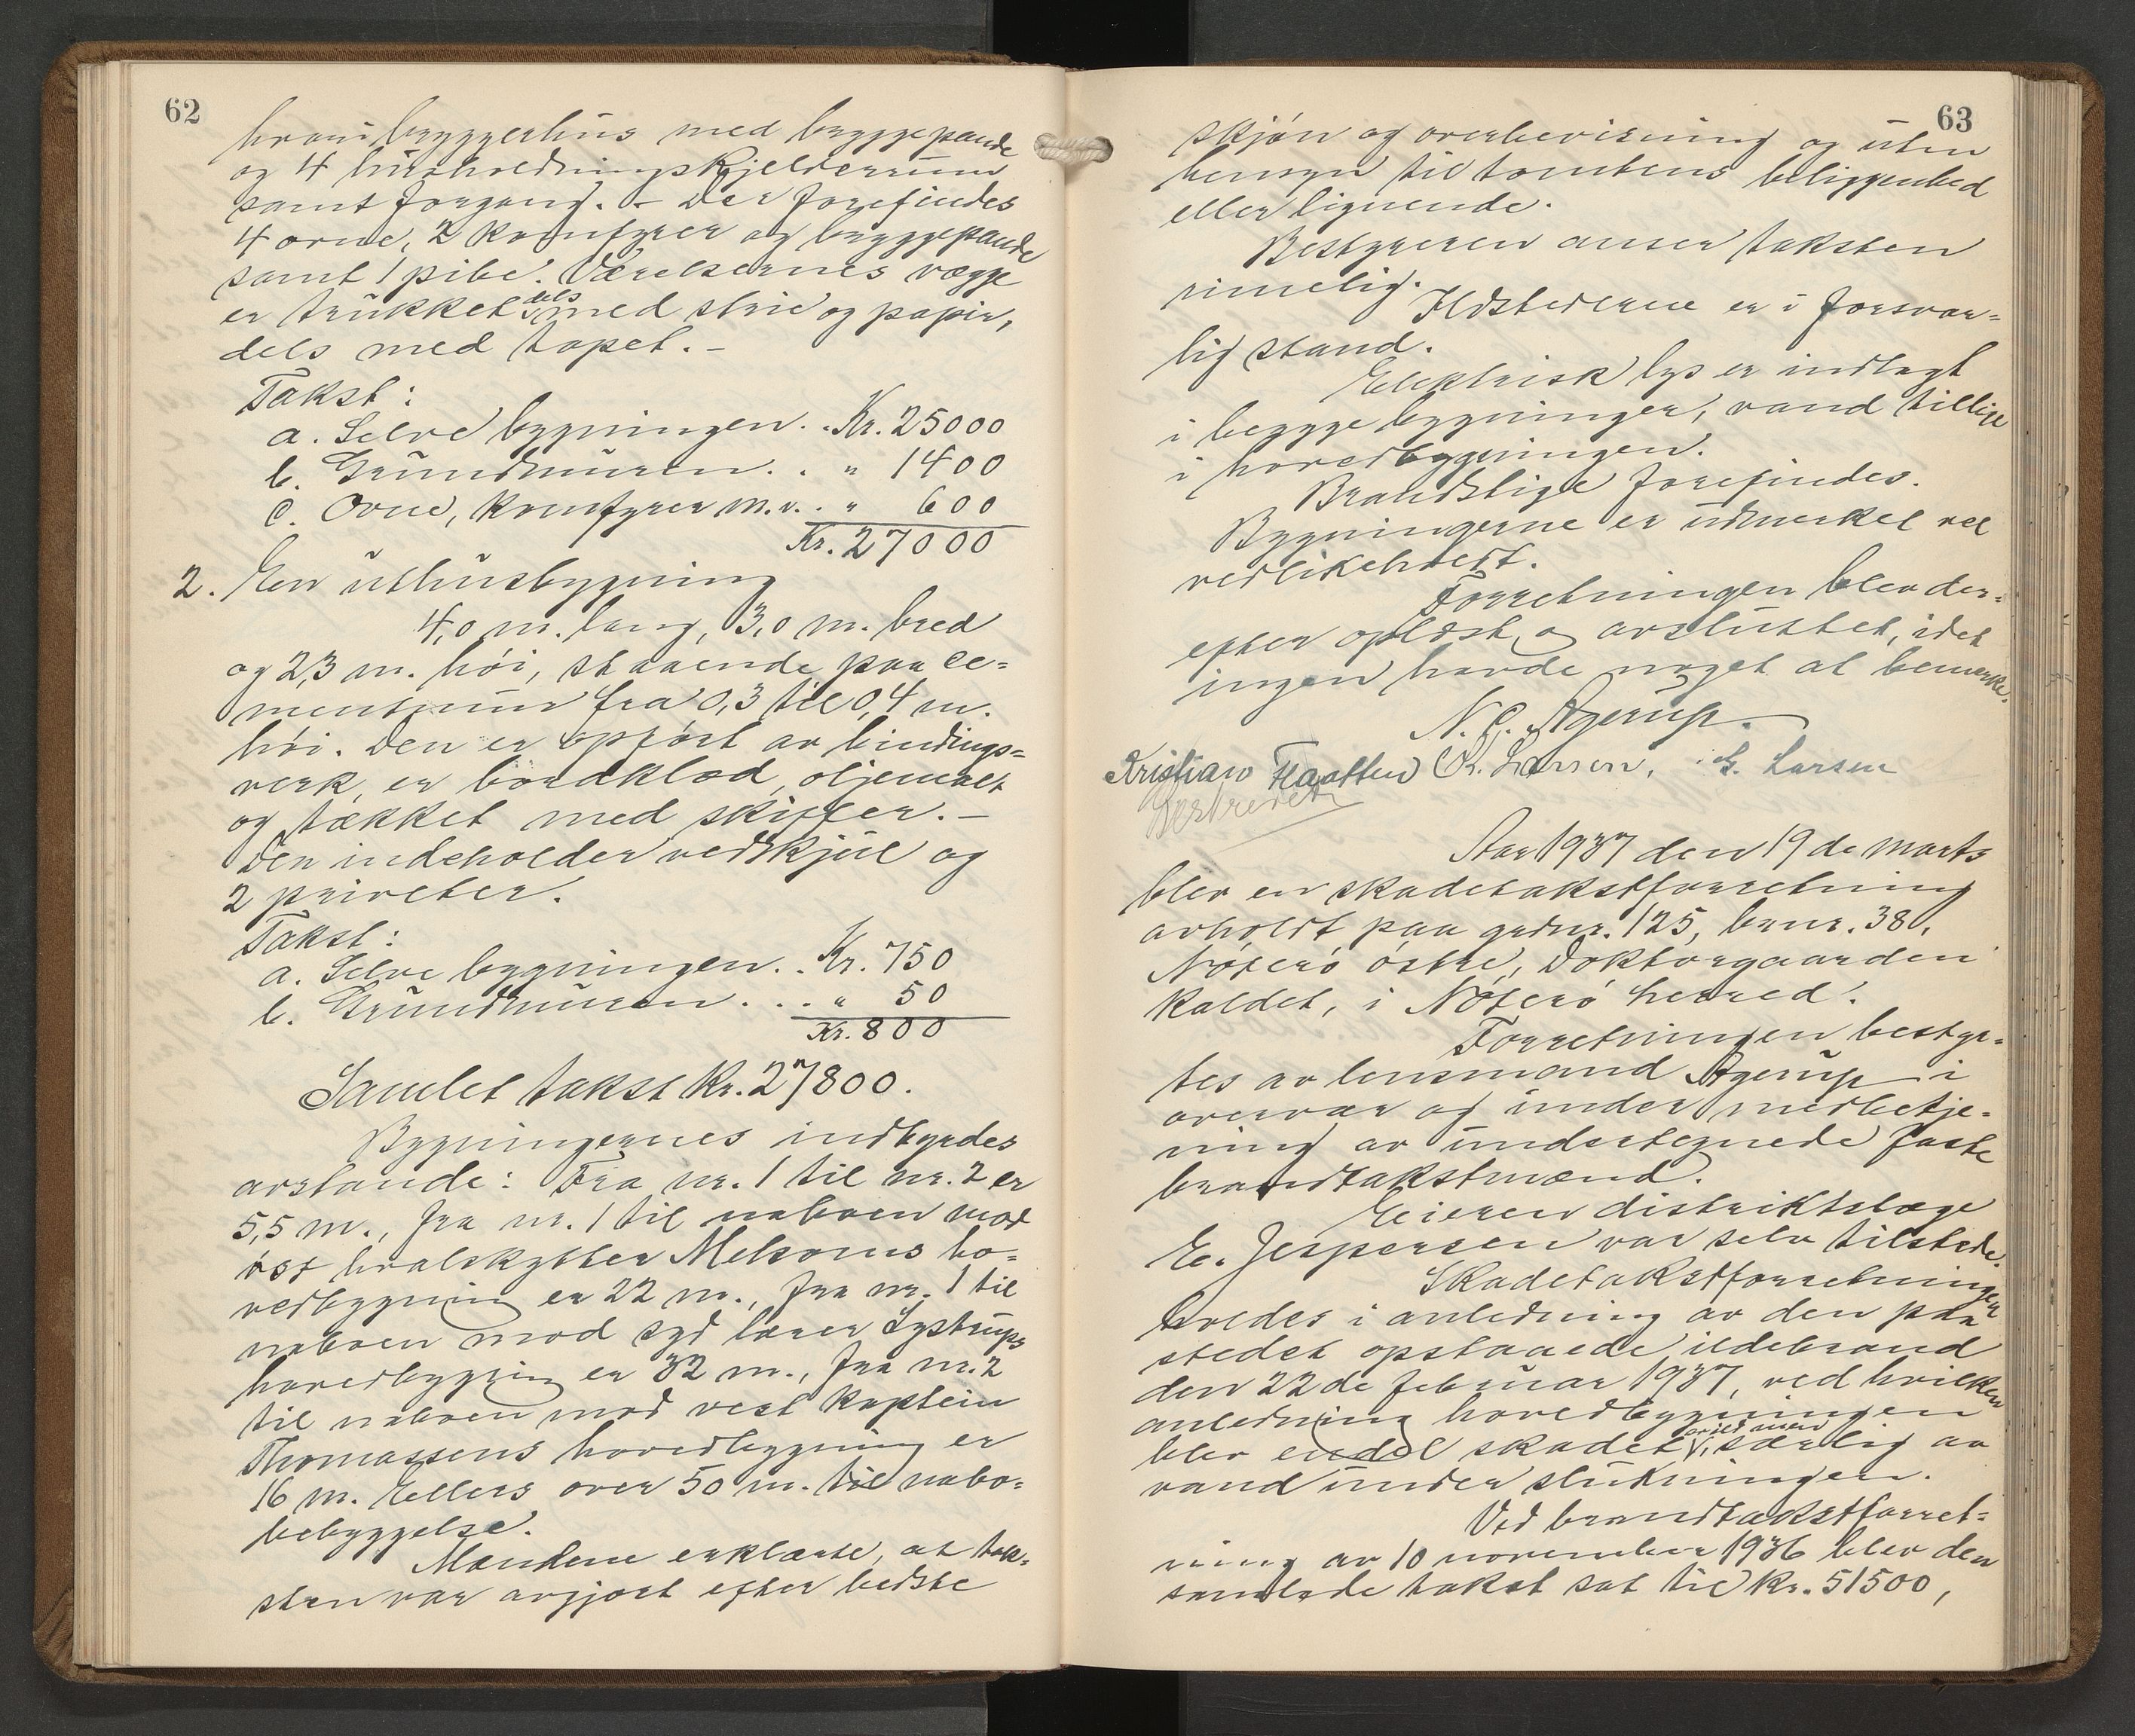 62
hvori bryggerhus med bryggepande
og 4 husholdningskjelderrum
samt forgang. – Der forefindes
4 ovne, 2 komfyrer og bryggepande
samt 1 pibe. Værelsernes vægge
er trukket dels med strie og papir,
dels med tapet. –
Takst:
a. Selve bygningen . . Kr. 25000
b. Grundmuren . . " 1400
c. Ovne, komfyrer m.v. . " 600
Kr. 27000
2. En uthusbygning
4,0 m. lang, 3,0 m. bred
og 2,3 m. høi, staaende paa ce=
mentmur fra 0,3 til 0,4 m.
høi. Den er opført av bindings=
verk, er bordklæd, oljemalt
og tækket med skifer. –
Den indeholder vedskjul og
2 priveter.
Takst:
a. Selve bygningen . . Kr. 750
b. Grundmuren . . . " 50
Kr. 800
Samlet takst Kr. 27800.
Bygningernes indbyrdes
avstande: Fra nr. 1 til nr. 2 er
5,5 m., fra nr. 1 til naboen mod
øst hvalskytter Melsoms ho=
vedbygning er 22 m., fra nr. 1 til
naboen mod syd lærer Systrups
hovedbygning er 32 m., fra nr. 2
til naboen mod vest kaptein
Thomassens hovedbygning er
16 m. Ellers over 50 m. til nabo=
bebyggelse.
Mændene erklærte, at tak=
sten var avgjort efter bedste
63
skjøn og overbevisning og uten
hensyn til tomtens beliggenhed
eller lignende.
Bestyreren anser taksten
rimelig.
Ildstederne er i forsvar=
lig stand.
Elektrisk lys er indlagt
i begge bygninger, vand tillige
i hovedbygningen.
Brandstige forefindes.
Bygningerne er udmerket vel
vedlikeholdt.
Forretningen blev der=
efter oplæst og avsluttet, idet
ingen havde noget at bemerke.
N. C. Agerup.
Kristian Flaatten K. Larsen, G. Larsen
Aar 1937 den 19de marts
blev en skadetakstforretning
avholdt paa grdnr. 125, brnr. 38,
Nøterø østre, Doktorgaarden
kaldet, i Nøterø herred.
Forretningen bestyr=
tes av lensmand Agerup i
overvær og under medbetje=
ning av undertegnede faste
brandtakstmænd.
Eieren distriktslæge
E. Jespersen var selv tilstede.
Skadetakstforretningen
holdes i anledning av den paa
stedet opstaaede ildebrand
den 22de februar 1937, ved hvilken
anledning hovedbygningen
blev endel skadet av ild men særlig av
vand under slukningen.
Ved brandtakstforret=
ning av 10 november 1936 blev den
samlede takst sat til kr. 51500,